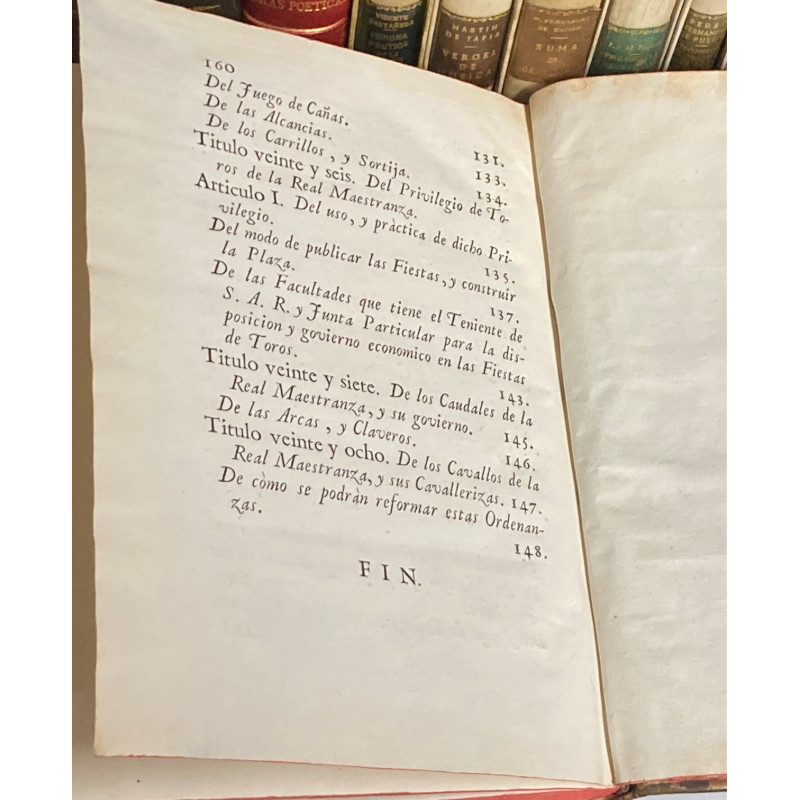 LAS POETICAS
VICENTE
CASTAÑEDA
MARTIN
DE TAPIA
VERGEL
DE
SUMA
160
Del Juego de Cañas. 131.
De las Alcancias. 133.
De los Carrillos, y Sortija. 134.
Titulo veinte y seis. Del Privilegio de To-
ros de la Real Maestranza.
Articulo I. Del uso, y pràctica de dicho Pri-
vilegio. 135.
Del modo de publicar las Fiestas, y construir
la Plaza. 137.
De las Facultades que tiene el Teniente de
S. A. R. y Junta Particular para la dis-
posicion y govierno economico en las Fiestas
de Toros. 143.
Titulo veinte y siete. De los Caudales de la
Real Maestranza, y su govierno. 145.
De las Arcas, y Claveros. 146.
Titulo veinte y ocho. De los Cavallos de la
Real Maestranza, y sus Cavallerizas. 147.
De còmo se podràn reformar estas Ordenan-
zas. 148.
FIN.